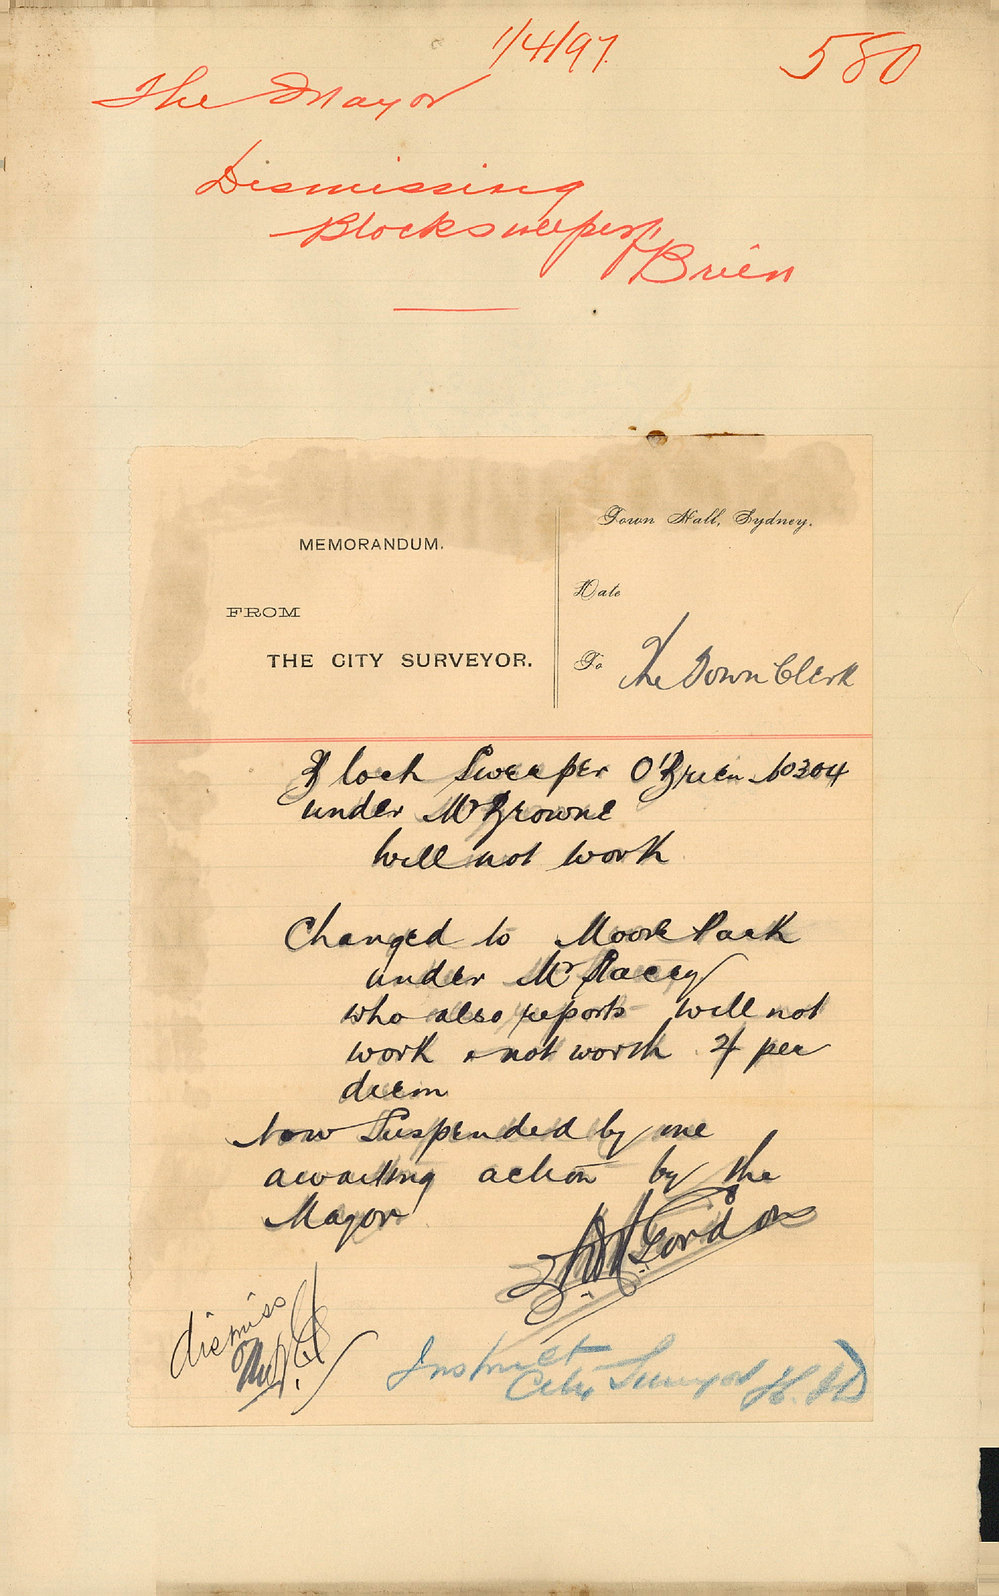 1/4/97.
580
The Mayor
Dismissing
Blocksweeper
O'Brien
MEMORANDUM.
FROM
THE CITY SURVEYOR.
Town Hall, Sydney.
Date
To The Town Clerk
Block Sweeper O'Brien No 304
under Mr Browne
will not work
Changed to Moore Park
under Mr Stacey
who also reports will not
work & not worth per
diem
Now Suspended by me
awaiting action by the
Mayor
Gordon
dismiss
Instruct
City Surveyor